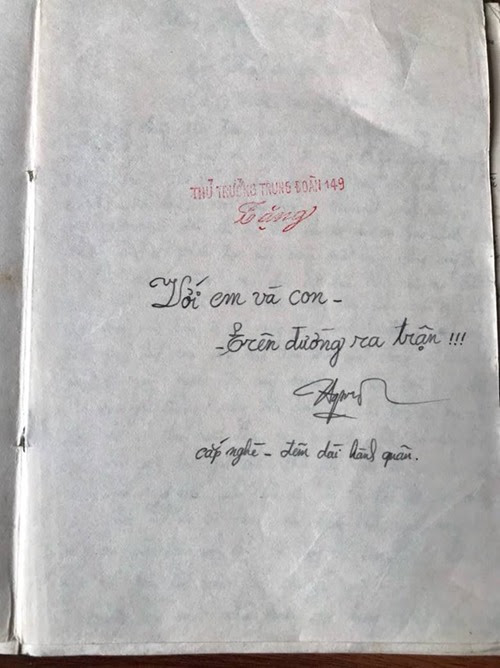 THỦ TRƯỞNG TRUNG ĐOÀN 149
Tặng
Với em và con -
- Trên đường ra trận !!!
cấp nghề - đêm dài hành quân.